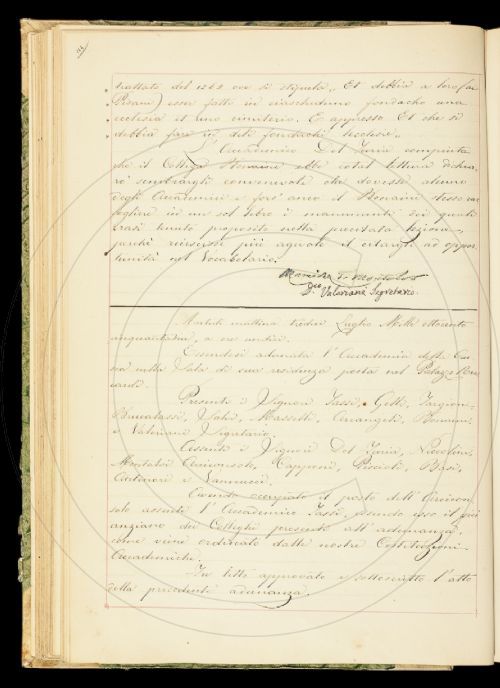 trattato del 1264 ove si stipula „ Et debbia a loro (ai
Pisani) esser fatto in ciascheduno fondacho una
ecclesia et uno cimiterio. E appresso Et che si
debbia fare in deti fondachi
L'Accademico Del Furia compiuta
che il Collega Bonaini ebbe cotal lettura dichia-
rò sembrargli convenevole che dovesse alcuno
degli Accademici e fors' anco il Bonaini stesso rac-
cogliere in un sol libro i manumenti dei quali
erasi tenuto proposito nella presentata lezione,
perchè riuscisse più agevole il citargli ad oppor-
tunità nel Vocabolario.
Dco Valeriani Segretario.
Martedì mattina tredici Luglio Mille ottocento
cinquanta, a ore undici.
Essendosi adunata l'Accademia della Cru-
sca nella Sala di sua residenza posta nel Palazzo Ric-
cardi.
Presenti i Signori Tassi, Gelli, Targioni,
Brucalassi, Salvi, Masselli, Arcangeli, Bonaini,
e Valeriani Segretario.
Assenti i Signori Del Furia, Niccolini,
Montalvi Arciconsolo, Capponi, Puccioli, Basi,
Contrucci e Vannucci.
Avendo occupato il posto dell' Arcicon-
solo assente l'Accademico Tassi, essendo esso il più
anziano dei Colleghi presenti all' adunanza,
come viene ordinato dalle nostre Costituzioni
Accademiche.
Fu letto approvato e sottoscritto l'atto
della precedente adunanza.